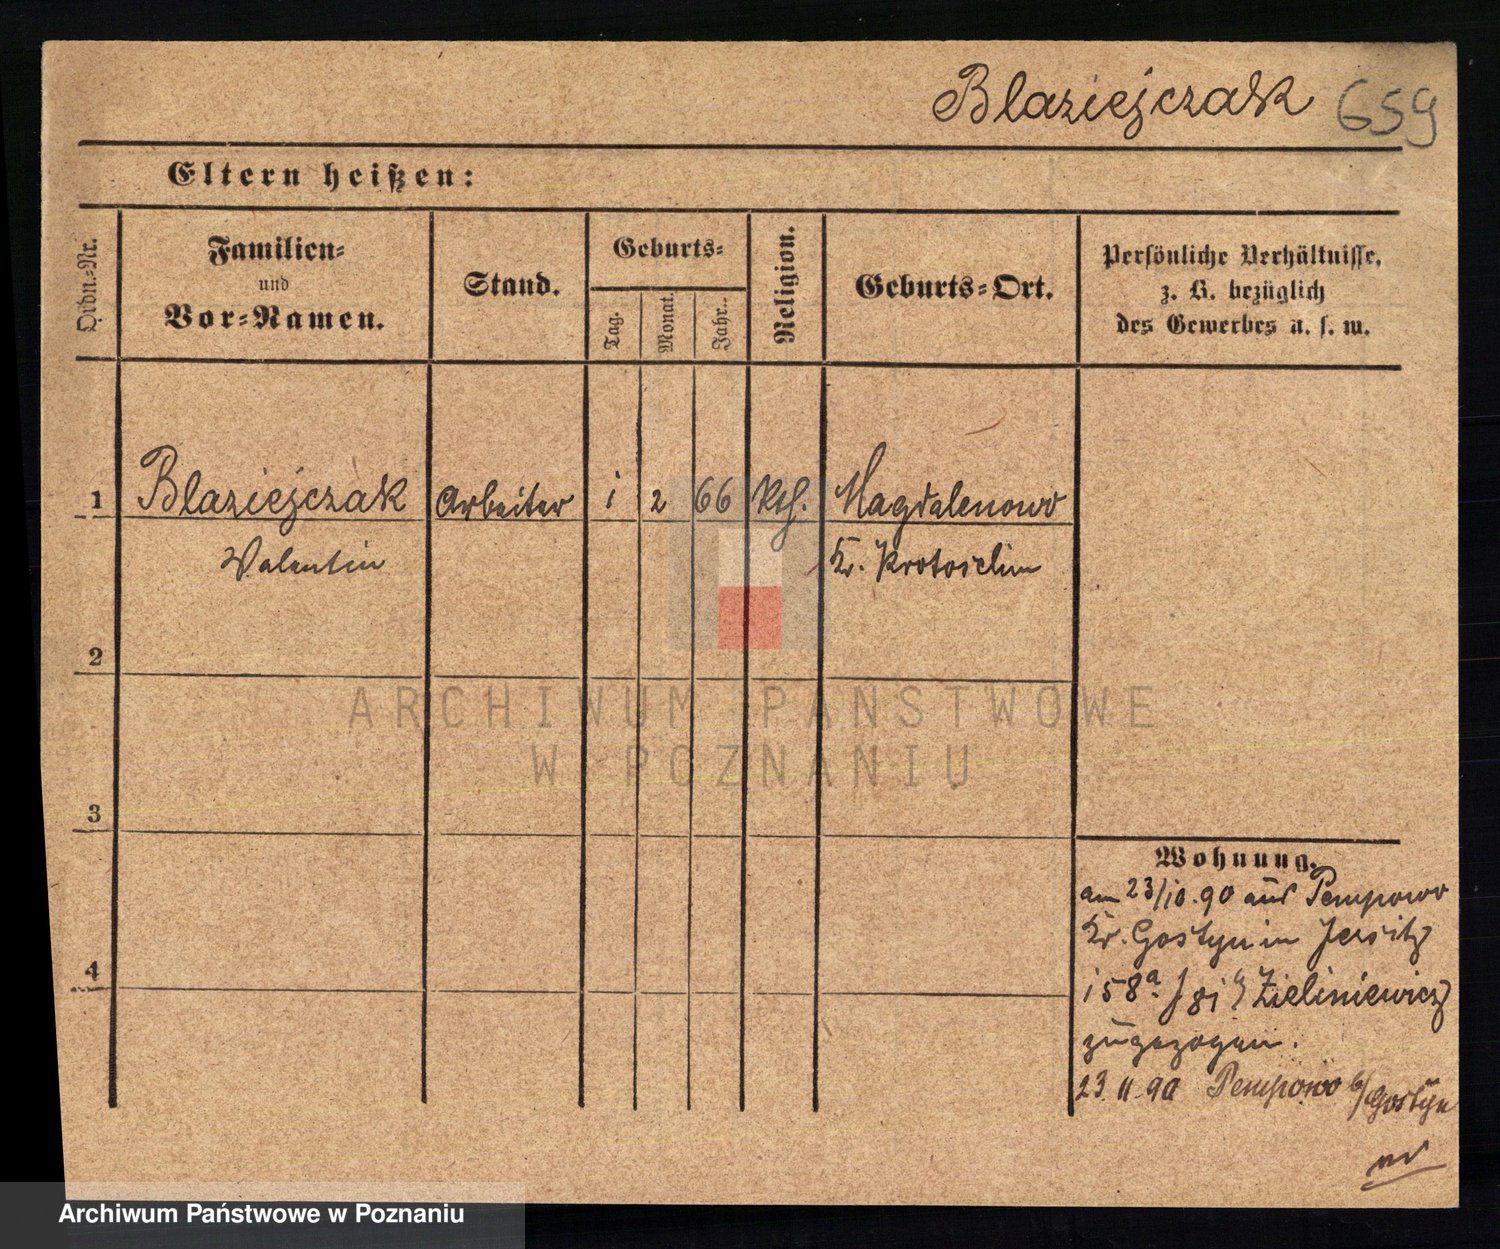 Blaziejczak 659
Eltern heißen:
Ordn.-Nr.
Familien-
und
Vor-Namen.
Stand.
Geburts-
Tag.
Monat.
Jahr.
Religion.
Geburts-Ort.
Persönliche Verhältnisse,
z. B. bezüglich
des Gewerbes u. s. w.
1 Blaziejczak Arbeiter 1 2 66 kth. Magdalenowo
Valentin Kr. Krotoschin
2
3
4
ARCHIWUM PAŃSTWOWE
W POZNANIU
Wohnung.
am 23/10.90 aus Pempowo
Kr. Gostyn in Jersitz
158a Zieliniewicz
zugezogen.
23 11 90 Pempowo b/Gostyn
Archiwum Państwowe w Poznaniu